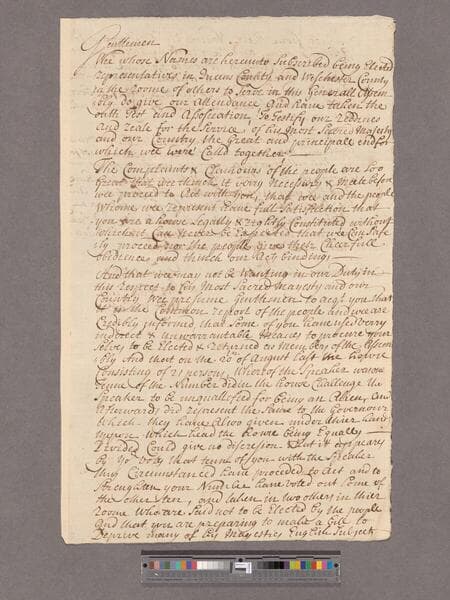 Gentlemen
Wee whose Names are hereunto Subscribed being Elected
representatives in Queens County and Weschester County
in the roome of others to Serve in this Generall Assem
bly do give our Attendance And have taken the
oath Test and Association, to testify our redines
and zeale for the Service of his Most Sacred Majesty
and our Country the Great and principall end for
which wee were Calld together
The Complaints & Clamours of the people are Soo
Great that wee think it very Necessary & Meete before
wee proceed to Act with you, that wee and the people
Whome wee represent have full Satisfaction that
you are a house Legally & rightly Constituted without
which it Can Never be Expected that wee Can Safe
ly proceed nor the people give their Cheerfull
obedience and think our Acts binding
And that wee may not be Wanting in our Duty in
this respect to his Most Sacred Majesty and our
Country We presume Gentlemen to acqt you that
it is the Common report of the people and wee are
Credibly informed that Some of you have used very
indirect & unwarrantable Meanes to procure your
selves to be Elected & returned as Members of the Assem
bly And that on the 20th of August last the house
Consisting of 21 persons, Whereof the Speaker was one
tenne of the Number did in the house Challenge the
Speaker to be unquallified for being an Alien, and
Afterwards did represent the Same to the Governour
Which they have Also given under their hands
the house being Equally
Divided Could give no Decision But it appears
by yor that tenn of you with the Speaker
thus Circumstanced have proceeded to Act and to
Strenghten your Number have voted out Some of
the other tenn, and taken in two others in their
roome Who are Said not to be Elected by the people
And that you are preparing to make a bill to
Deprive many of his Majesties English Subjects